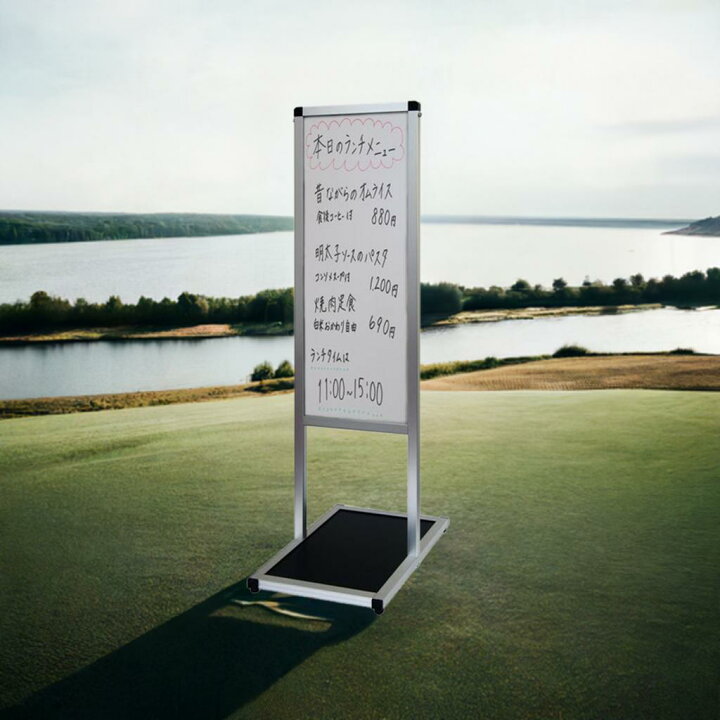 本日のランチメニュー
昔ながらのオムライス
食後コーヒー付 880円
明太子ソースのパスタ
コンソメスープ付 1,200円
焼肉定食
白米おかわり自由 690円
ランチタイムは
11:00~15:00